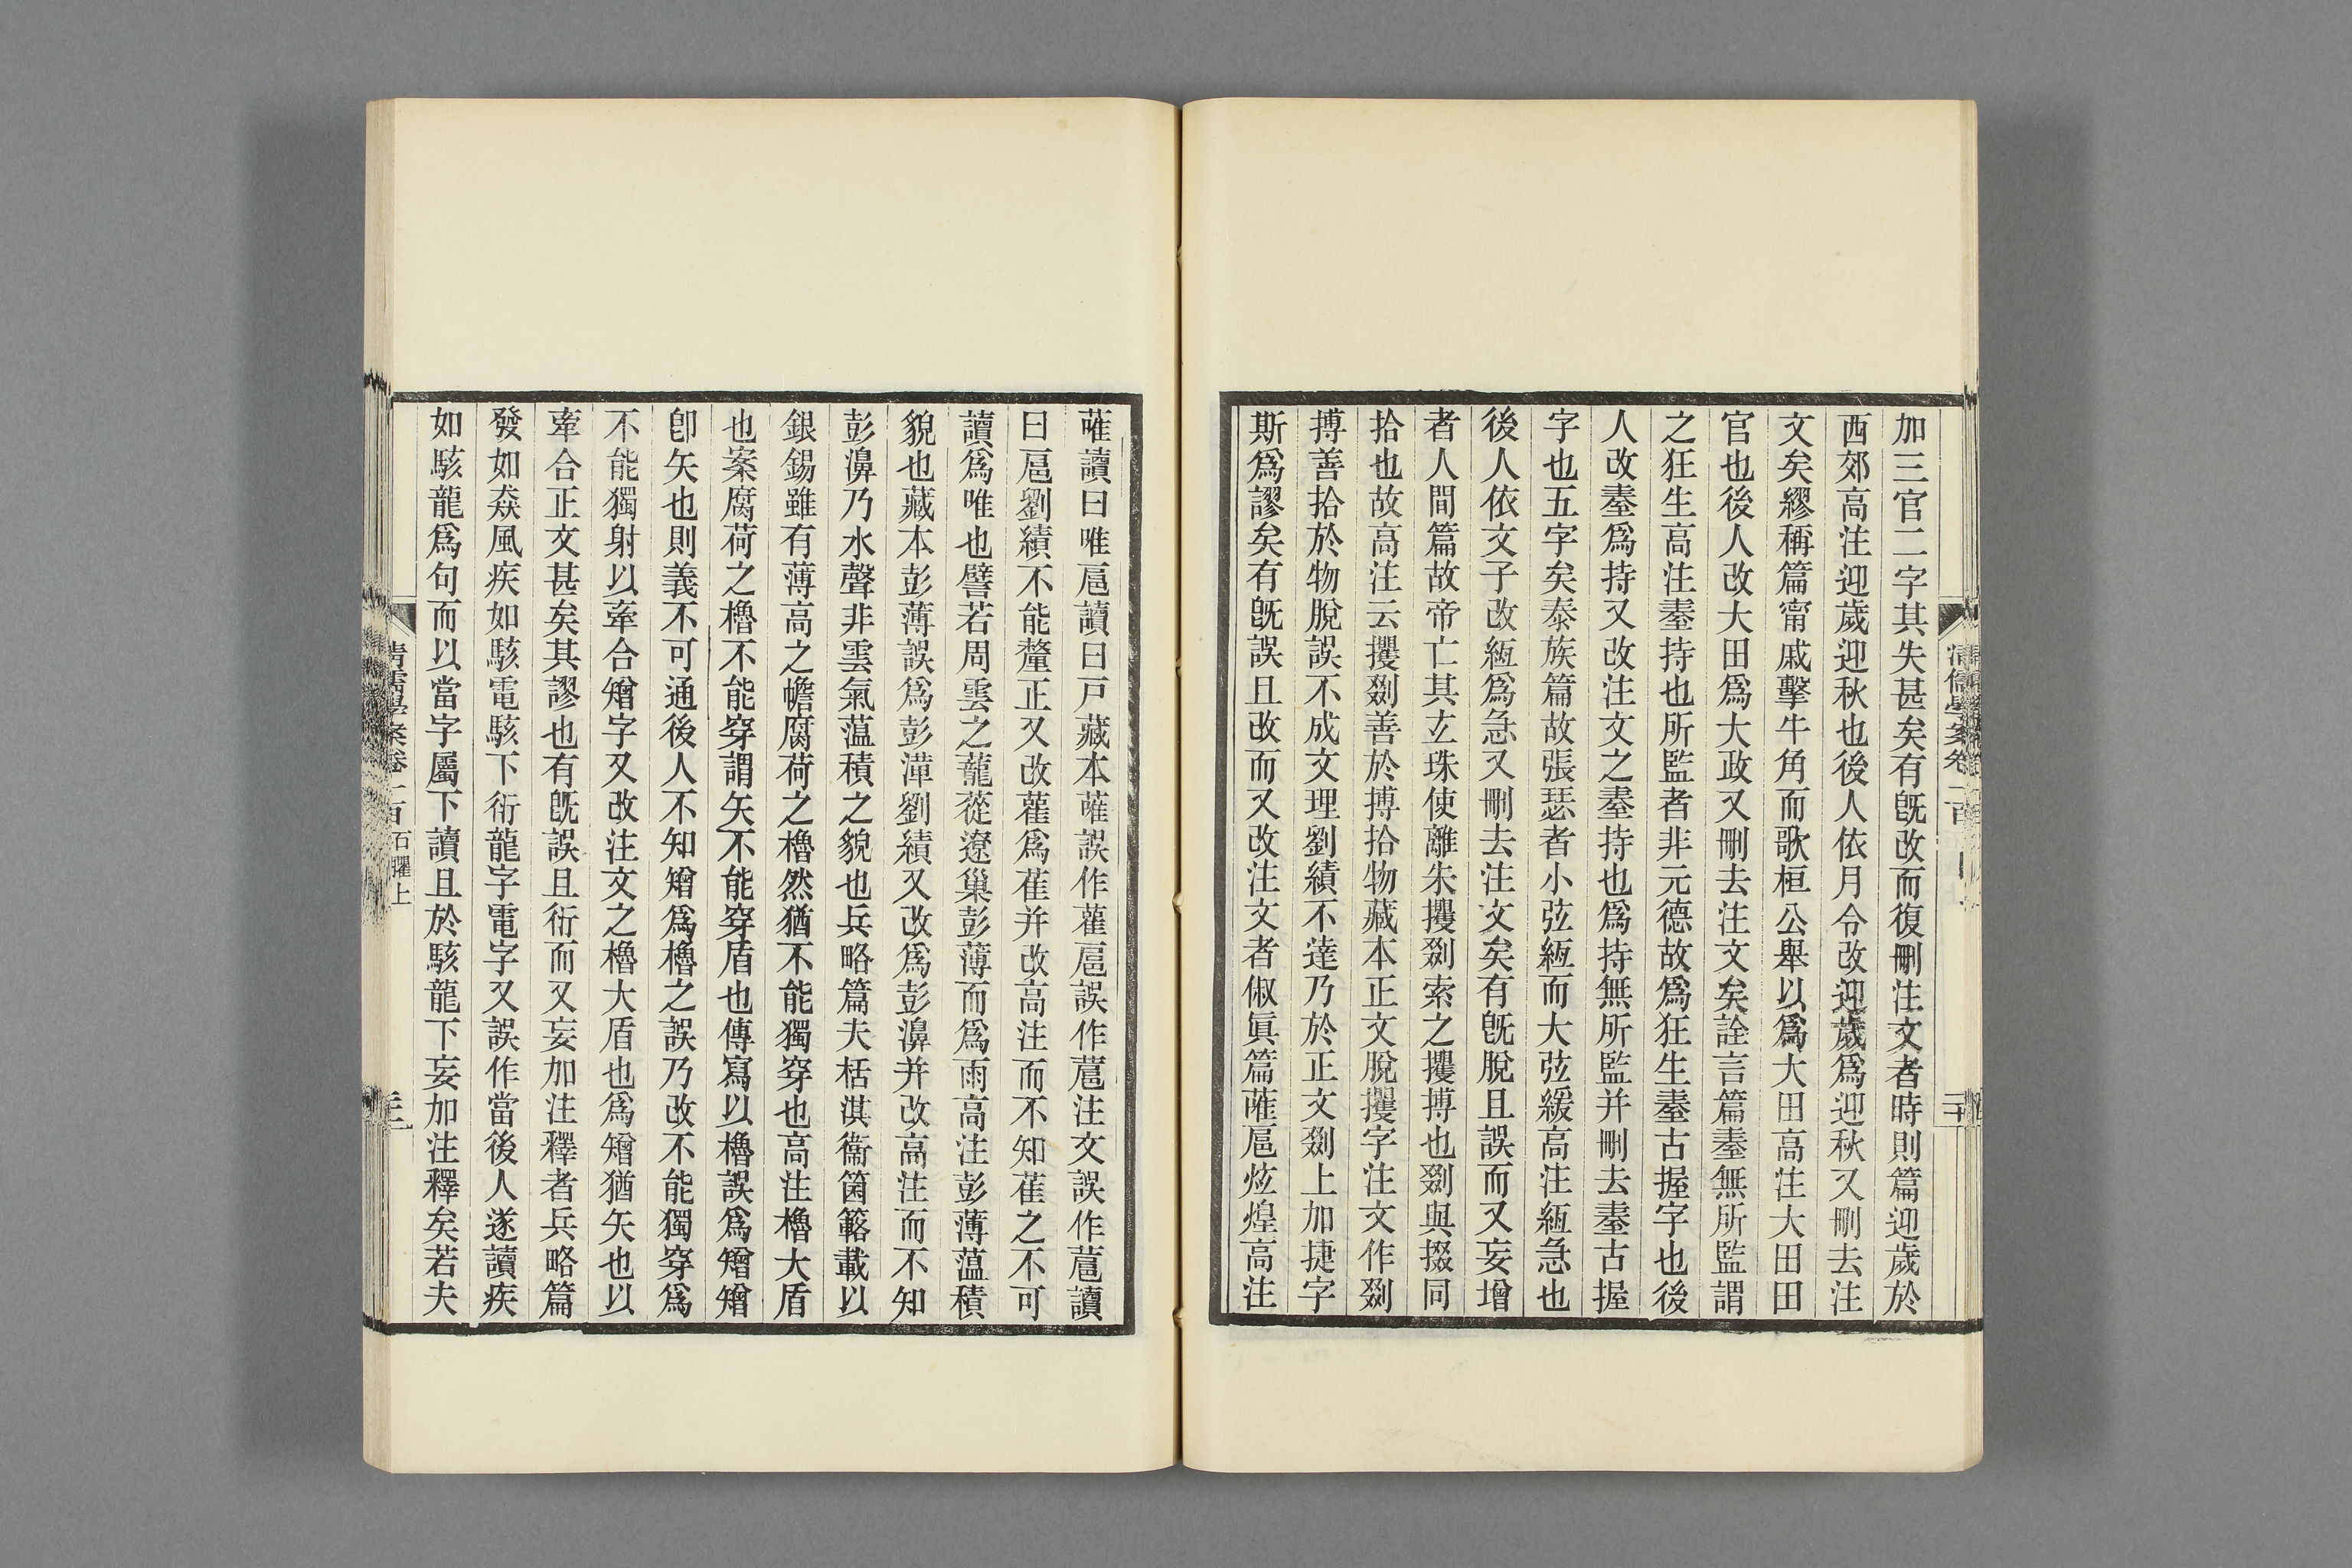 加三官二字其失甚矣有旣改而復刪注文者時則篇迎歲於
西郊高注迎歲迎秋也後人依月令改迎歲爲迎秋又刪去注
文矣繆稱篇甯戚擊牛角而歌桓公舉以爲大田高注大田田
官也後人改大田爲大政又刪去注文矣詮言篇㙜無所監謂
之狂生高注㙜持也所監者非元德故爲狂生㙜古握字也後
人改㙜爲持又改注文之㙜持也爲持無所監并刪去㙜古握
字也五字矣泰族篇故張瑟者小弦絚而大弦緩高注絚急也
後人依文子改絚爲急又刪去注文矣有旣脫且誤而又妄增
者人間篇故帝亡其玄珠使離朱攫剟索之攫搏也剟與掇同
拾也故高注云攫剟善於搏拾物藏本正文脫攫字注文作剟
搏善拾於物脫誤不成文理劉績不達乃於正文剟上加捷字
斯爲謬矣有旣誤且改而又改注文者俶眞篇蓶扈炫煌高注
蓶讀曰唯扈讀曰戸藏本蓶誤作蘿扈誤作蔰注文誤作蔰讀
曰扈劉績不能釐正又改蘿爲萑并改高注而不知萑之不可
讀爲唯也譬若周雲之蘢蓯遼巢彭薄而爲雨高注彭薄蕰積
貌也藏本彭薄誤爲彭濞劉績又改爲彭濞并改高注而不知
彭濞乃水聲非雲氣蕰積之貌也兵略篇夫栝淇衞箘簵載以
銀錫雖有薄高之幨腐荷之櫓然猶不能獨穿也高注櫓大盾
也案腐荷之櫓不能穿謂矢不能穿盾也傳寫以櫓誤爲矰矰
卽矢也則義不可通後人不知矰爲櫓之誤乃改不能獨穿爲
不能獨射以牽合矰字又改注文之櫓大盾也爲矰猶矢也以
牽合正文甚矣其謬也有旣誤且衍而又妄加注釋者兵略篇
發如猋風疾如駭電駭下衍龍字電字又誤作當後人遂讀疾
如駭龍爲句而以當字屬下讀且於駭龍下妄加注釋矣若夫